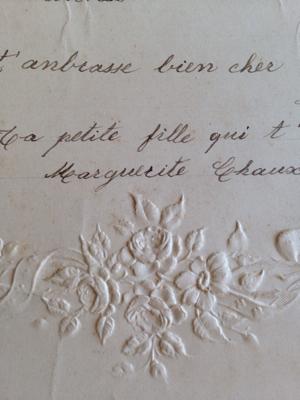 t'anbrasse bien cher
Ta petite fille qui t'
Marguerite Chaux